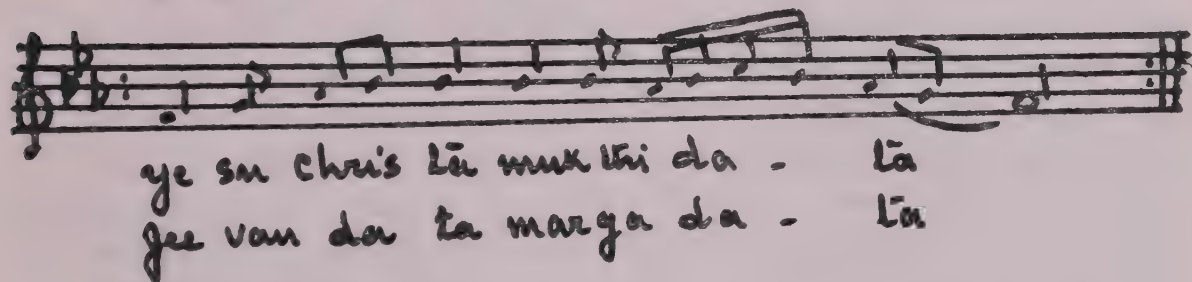 ye su chris tā mukthi da - tā
jee van da ta marga da - ta